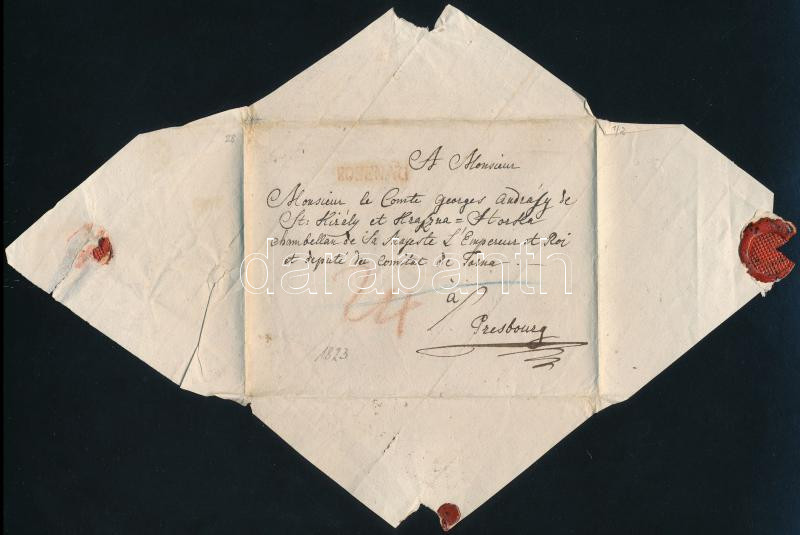 28
1/2
A Monsieur
Monsieur le Comte Georges Andrásy de
St: Király et Krazna = Horka
chambellan de Sa Majeste L'Empereur et Roi
et deputé du Comitat de Torna
à
Presbourg
24
1823
darabanth